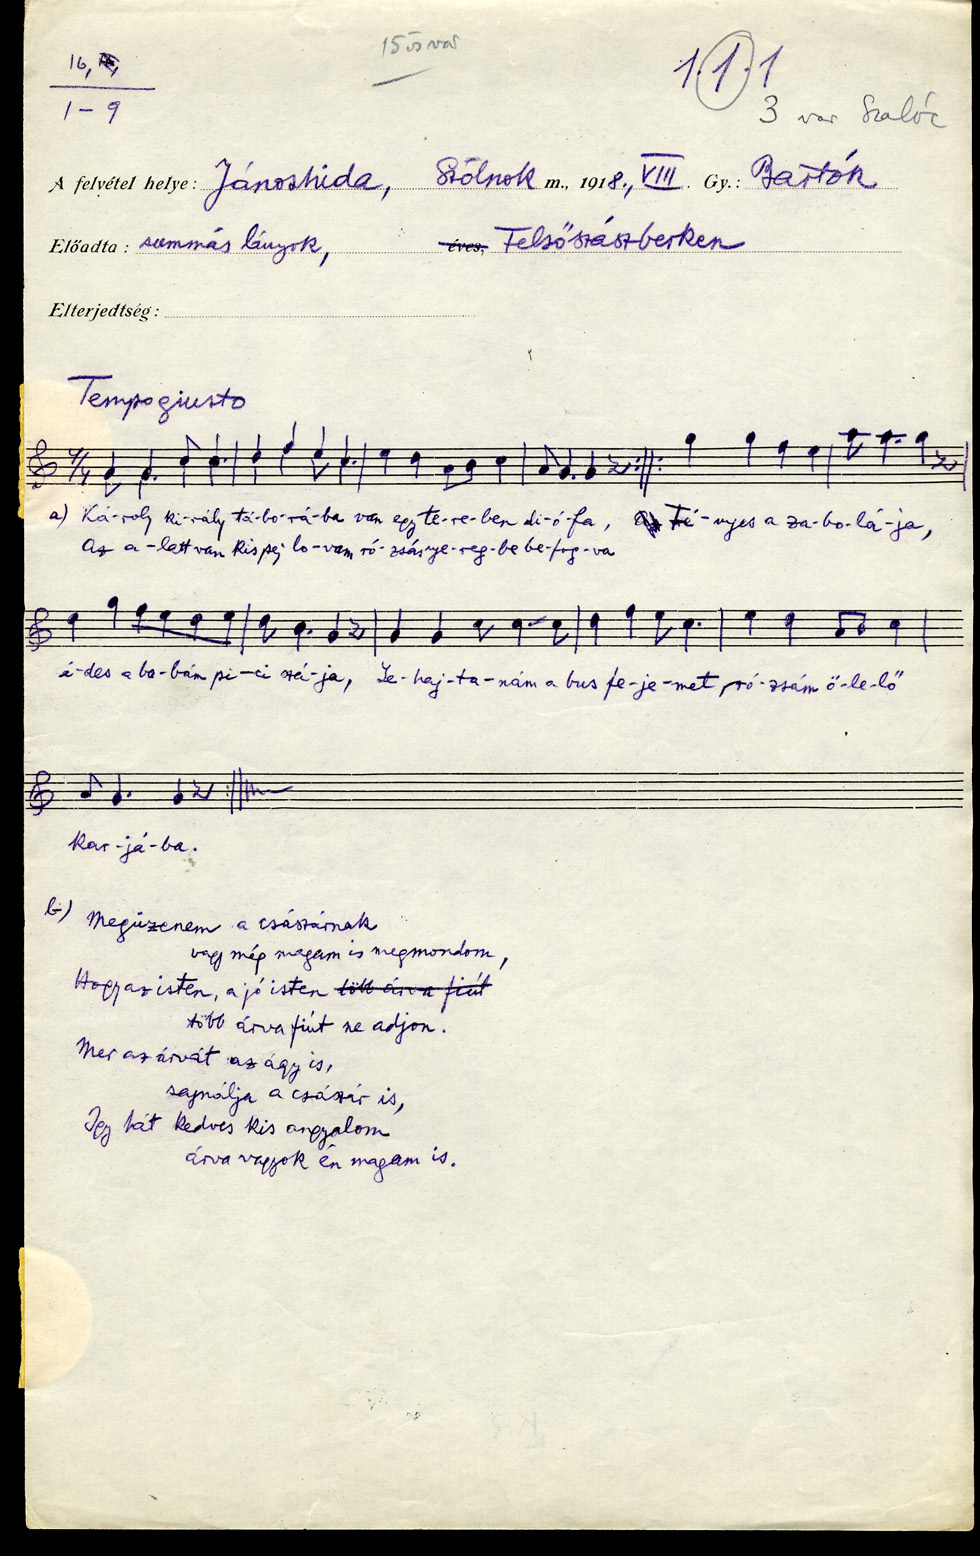 15 ös var
16,
1-9
1.1.1
3 var Szalóc
A felvétel helye: Jánoshida, Szólnok m., 1918., VIII. Gy.: Bartók
Előadta: summás lányok, éves, Felsőszászberken
Elterjedtség:
Tempo giusto
7/4
a) Ká-roly ki-rály tá-bo-rá-ba van egy te-re-ben di-ó-fa, Fé-nyes a za-bo-lá-ja,
Az a-latt van kis pej lo-vam ró-zsás nye-reg-be be-fog-va
é-des a ba-bám pi-ci szá-ja, Le-haj-ta-nám a bus fe-je-met, ró-zsám ö-le-lő
kar-já-ba.
b) Megüzenem a császárnak
vagy még magam is megmondom,
Hogy az isten, a jó isten több árva fiút
több árva fiút ne adjon.
Mer az árvát az ágy is,
sajnálja a császár is,
Igy hát kedves kis angyalom
árva vagyok én magam is.